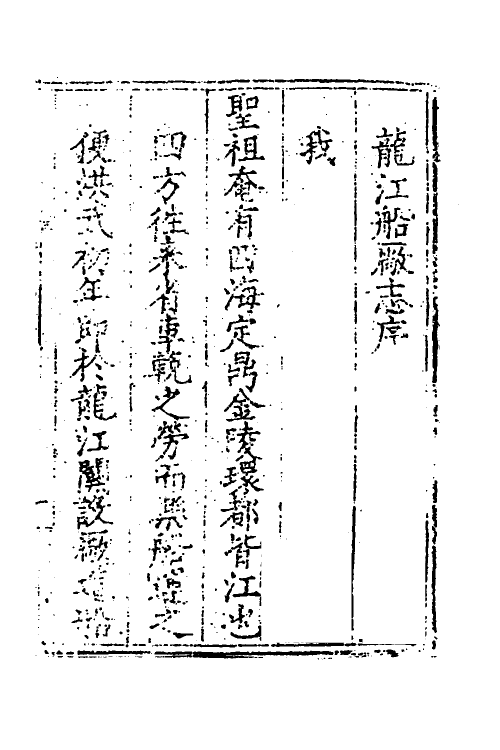 龍江船廠志序
我
聖祖奄有四海定鼎金陵環都皆江也
四方往來省車輓之勞而樂船運之
便洪武初年即於龍江關設廠造船